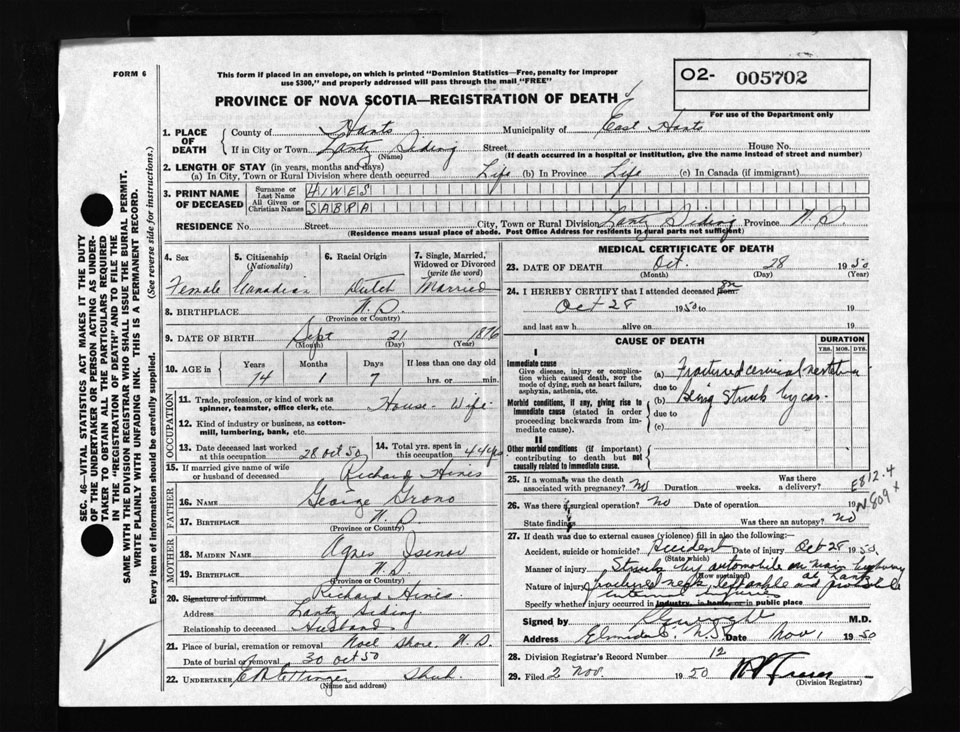 FORM 6
This form if placed in an envelope, on which is printed "Dominion Statistics—Free, penalty for improper
use $300," and properly addressed will pass through the mail "FREE"
O2- 005702
PROVINCE OF NOVA SCOTIA—REGISTRATION OF DEATH
For use of the Department only
1. PLACE OF DEATH
County of Hants Municipality of East Hants
If in City or Town Lantz Siding Street House No.
(Name) (If death occurred in a hospital or institution, give the name instead of street and number)
2. LENGTH OF STAY (in years, months and days)
(a) In City, Town or Rural Division where death occurred Life (b) In Province Life (c) In Canada (if immigrant)
3. PRINT NAME OF DECEASED
Surname or Last Name HINES
All Given or Christian Names SABRA
RESIDENCE No. Street City, Town or Rural Division Lantz Siding Province N.S.
(Residence means usual place of abode. Post Office Address for residents in rural parts not sufficient)
4. Sex Female
5. Citizenship (Nationality) Canadian
6. Racial Origin Dutch
7. Single, Married, Widowed or Divorced (write the word) Married
8. BIRTHPLACE N.S.
(Province or Country)
9. DATE OF BIRTH Sept 21 1876
(Month) (Day) (Year)
10. AGE in Years Months Days If less than one day old
74 1 7 hrs. or min.
OCCUPATION
11. Trade, profession or kind of work as spinner, teamster, office clerk, etc. House-Wife
12. Kind of industry or business, as cotton-mill, lumbering, bank, etc.
13. Date deceased last worked at this occupation 28 Oct 50
14. Total yrs. spent in this occupation 44 yrs
15. If married give name of wife or husband of deceased Richard Hines
FATHER
16. NAME George Grono
17. BIRTHPLACE N.S.
(Province or Country)
MOTHER
18. MAIDEN NAME Agnes Isenor
19. BIRTHPLACE N.S.
(Province or Country)
20. Signature of informant Richard Hines
Address Lantz Siding
Relationship to deceased Husband
21. Place of burial, cremation or removal Noel Shore, N.S.
Date of burial or removal 30 Oct 50
22. UNDERTAKER Ettinger Shub.
(Name and address)
MEDICAL CERTIFICATE OF DEATH
23. DATE OF DEATH Oct. 28 1950
(Month) (Day) (Year)
24. I HEREBY CERTIFY that I attended deceased from: on
Oct 28 1950 to 19
and last saw h alive on 19
CAUSE OF DEATH
DURATION
YRS. MOS. DYS.
I
Immediate cause
Give disease, injury or complication which caused death, not the mode of dying, such as heart failure, asphyxia, asthenia, etc.
(a) Fractured cervical vertebra
due to
Morbid conditions, if any, giving rise to immediate cause (stated in order proceeding backwards from immediate cause).
(b) Being Struck by car.
due to
(c)
II
Other morbid conditions (if important) contributing to death but not causally related to immediate cause.
25. If a woman was the death associated with pregnancy? No Duration weeks. Was there a delivery?
E812.4
N809
26. Was there a surgical operation? No Date of operation 19
State findings Was there an autopsy? No
27. If death was due to external causes (violence) fill in also the following:—
Accident, suicide or homicide? Accident Date of injury Oct 28 1950
(State which)
Manner of injury Struck by automobile on main highway at Lantz
(How sustained)
Nature of injury fractured neck, left ankle and probable internal injuries
Specify whether injury occurred in industry, in home, or in public place
Signed by M.D.
Address Elmsdale, N.S. Date Nov 1 1950
28. Division Registrar's Record Number 12
29. Filed 2 Nov. 1950 Fraser
(Division Registrar)
SEC. 46—VITAL STATISTICS ACT MAKES IT THE DUTY
OF THE UNDERTAKER OR PERSON ACTING AS UNDER-
TAKER TO OBTAIN ALL THE PARTICULARS REQUIRED
IN THE "REGISTRATION OF DEATH" AND TO FILE THE
SAME WITH THE DIVISION REGISTRAR WHO SHALL ISSUE THE BURIAL PERMIT.
WRITE PLAINLY WITH UNFADING INK. THIS IS A PERMANENT RECORD.
Every item of information should be carefully supplied. (See reverse side for instructions.)